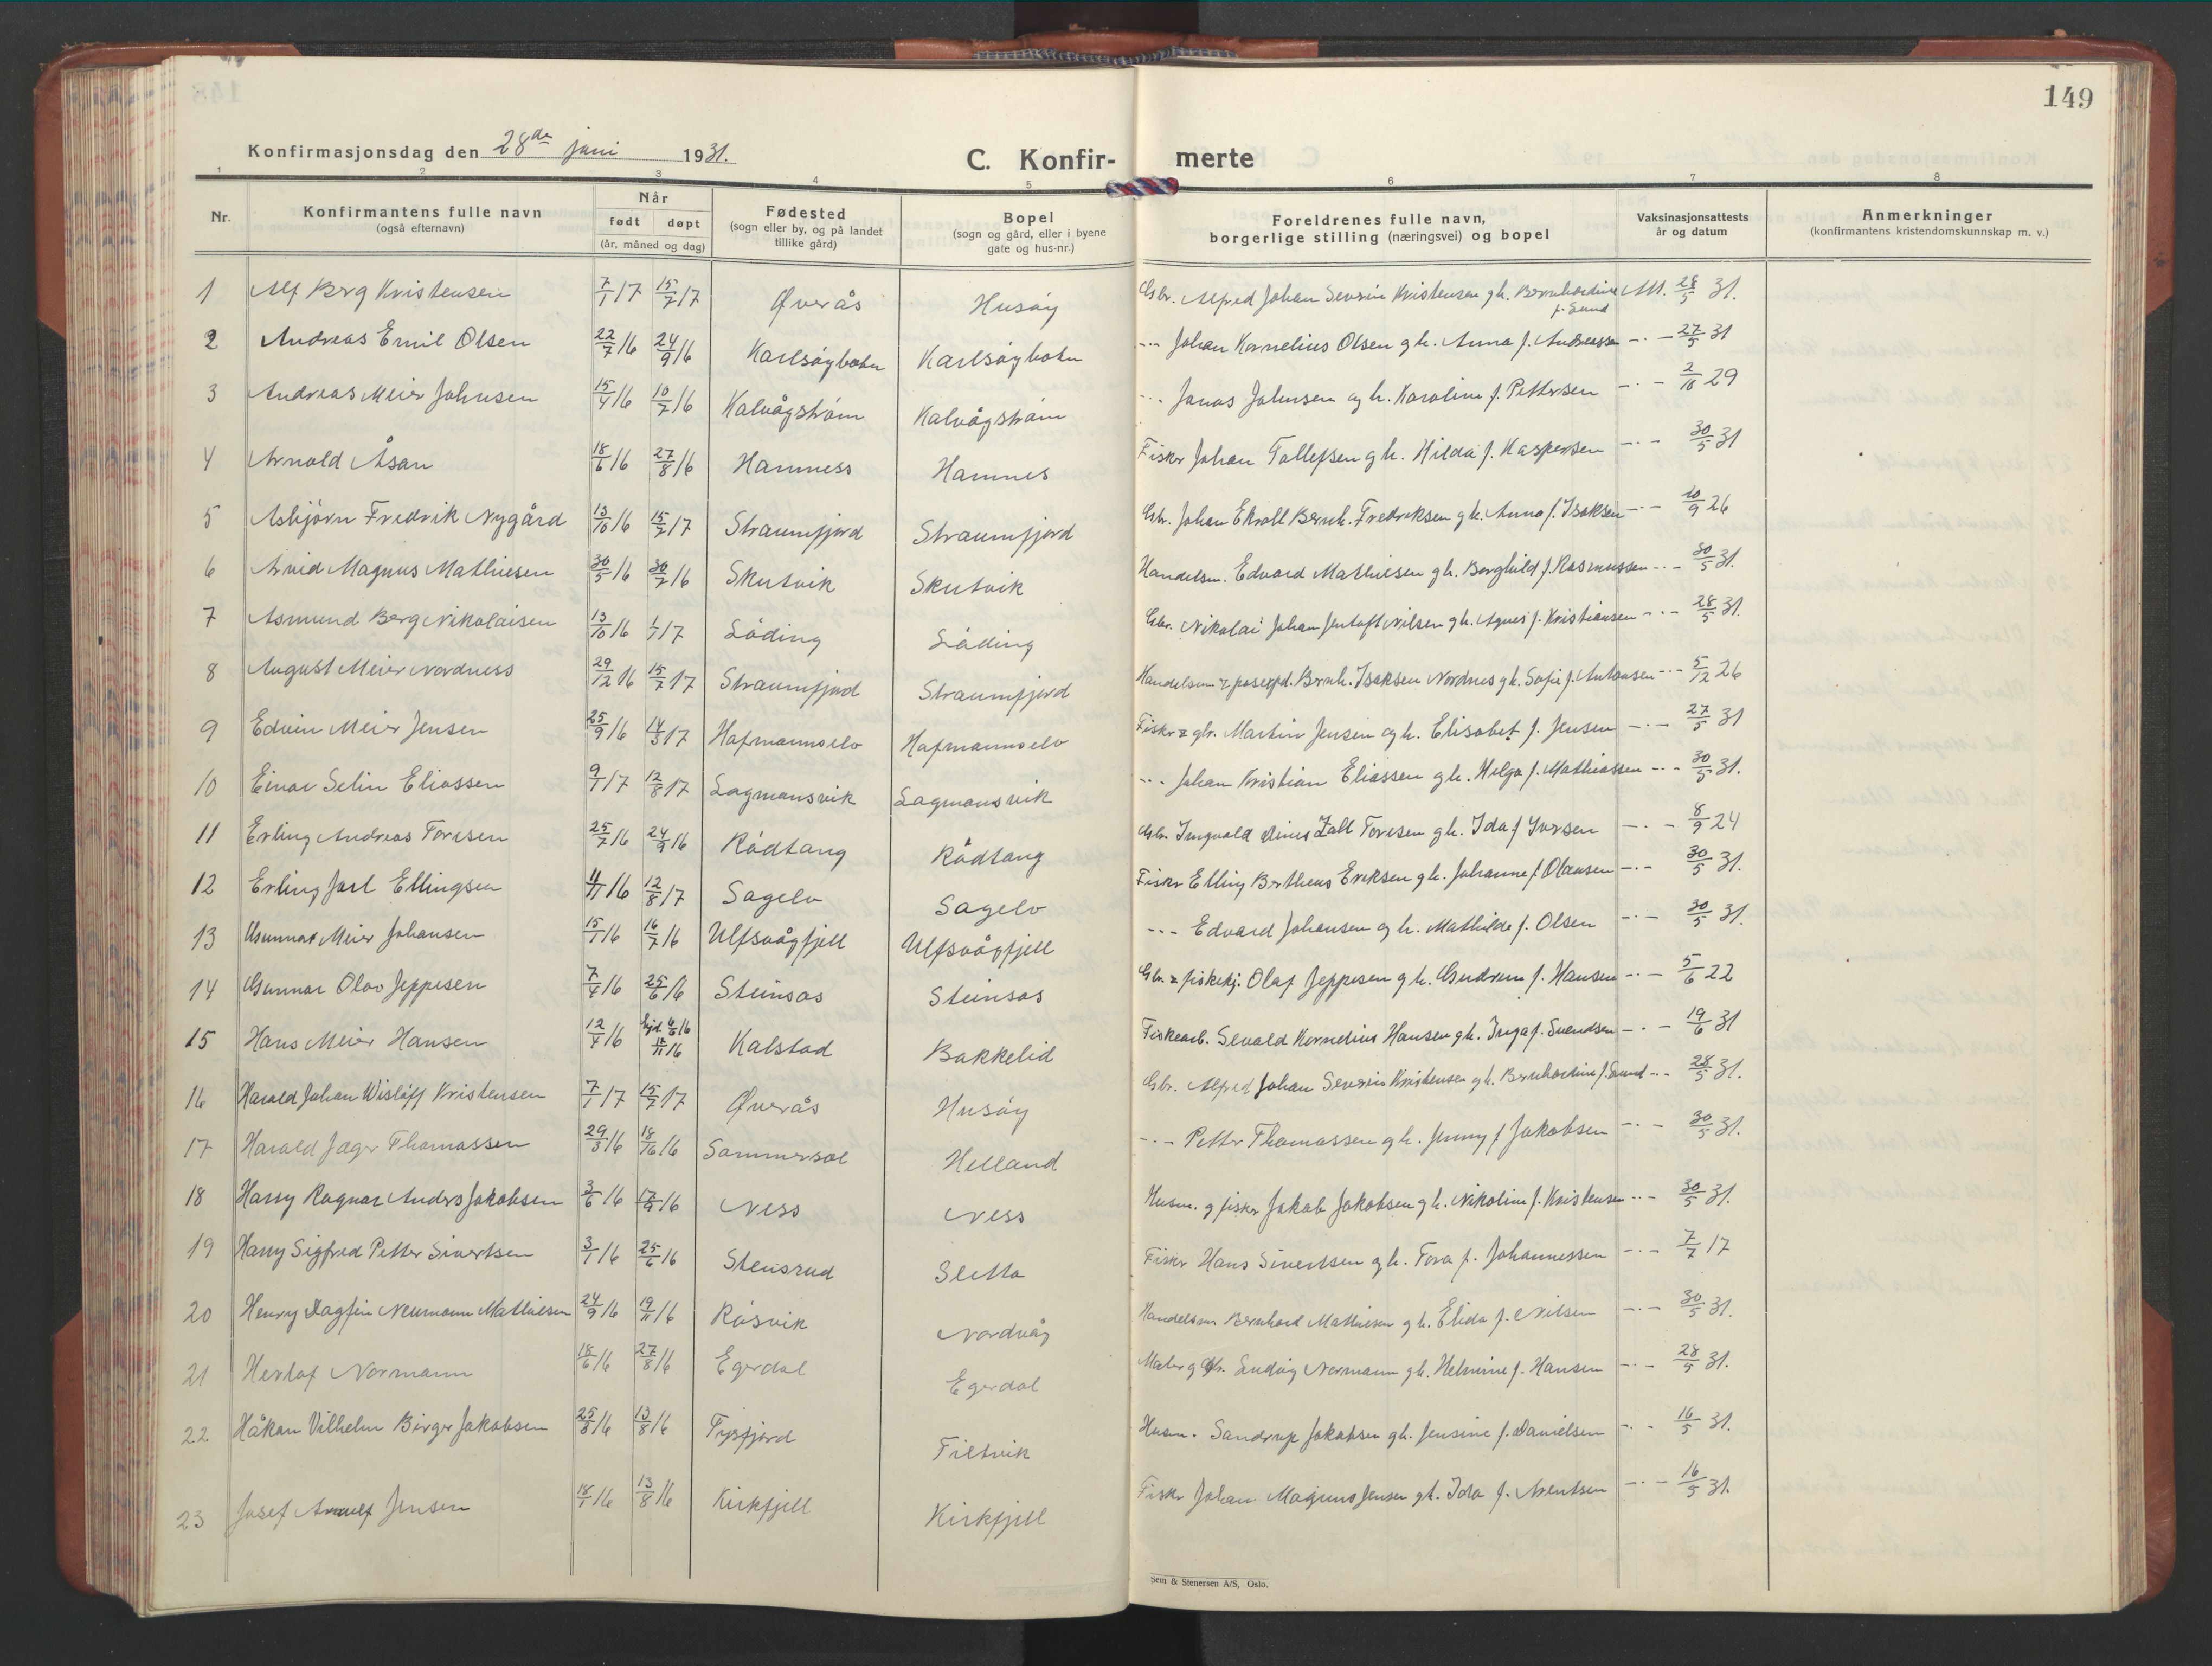 149
Konfirmasjonsdag den 28de juni 1931.
C. Konfir- merte
1 2 3 4 5 6 7 8
Nr. Konfirmantens fulle navn (også efternavn) Når født døpt (år, måned og dag) Fødested (sogn eller by, og på landet tillike gård) Bopel (sogn og gård, eller i byene gate og hus-nr.) Foreldrenes fulle navn, borgerlige stilling (næringsvei) og bopel Vaksinasjonsattests år og datum Anmerkninger (konfirmantens kristendomskunnskap m. v.)
1 Alf Berg Kristensen 7/1 17 15/7 17 Øverås Husøy Gbr. Alfred Johan Severin Kristensen g h. Bernhardine f. Sund Att. 28/5 31.
2 Andreas Emil Olsen 22/7 16 24/9 16 Karlsøybotn Karlsøybotn -·- Johan Kornelius Olsen g h. Anna f. Andreassen -·- 27/5 31
3 Andreas Meier Johnsen 15/4 16 10/7 16 Kalvågstrøm Kalvågstrøm -·- Jonas Johnsen og h. Karoline f. Pettersen -·- 2/10 29
4 Arnold Åsan 18/6 16 27/8 16 Hamness Hamnes Fisker Johan Tollefsen g h. Hilda f. Kaspersen -·- 30/5 31
5 Asbjörn Fredrik Nygård 13/10 16 15/7 17 Straumfjord Straumfjord Gbr. Johan Ekroll Bernh. Fredriksen g h. Anna f. Isaksen -·- 10/9 26
6 Arvid Magnus Mathiesen 30/5 16 30/7 16 Skutvik Skutvik Handelsm. Edvard Mathiesen g h. Borghild f. Rasmussen -·- 30/5 31.
7 Asmund Berg Nikolaisen 13/10 16 1/7 17 Löding Löding Gbr. Nikolai Johan Jentoft Nilsen g h. Agnes f. Kristiansen -·- 28/5 31.
8 August Meier Nordness 29/12 16 15/7 17 Straumfjord Straumfjord Handelsm & posexpd. Bernh. Isaksen Nordnes g h. Sofie f. Antonsen -·- 5/12 26
9 Edvin Meier Jensen 25/9 16 14/3 17 Hafmannselv Hafmannselv Fisker & gbr. Martin Jensen og h. Elisabet f. Jensen -·- 27/5 31
10 Einar Selin Eliassen 9/1 17 12/8 17 Lagmansvik Lagmansvik -·- Johan Kristian Eliassen g h. Helga f. Mathiassen -·- 30/5 31.
11 Erling Andreas Toresen 25/7 16 24/9 16 Rödtang Rödtang Gbr. Ingvald Toresen g h. Ida f Iversen -·- 8/9 24
12 Erling Jarl Ellingsen 4/11 16 12/8 17 Sagelv Sagelv Fisker Elling Bertheus Eriksen g h. Johanne f Olausen -·- 30/5 31.
13 Gunnar Meier Johansen 15/1 16 16/7 16 Ulfsvågfjell Ulfsvågfjell -·- Edvard Johansen og h. Mathilde f. Olsen -·- 30/5 31.
14 Gunnar Olav Jeppesen 7/4 16 25/6 16 Steinsas Steinsas Gbr. & fiskekj. Olaf Jeppesen g h. Gudrun f. Hansen -·- 5/6 22
15 Hans Meier Hansen 12/4 16 hjd. 4/6 16 12/11 16 Kalstad Bakkelid Fiskearb. Sevald Kornelius Hansen g h. Inga f. Svendsen -·- 19/6 31
16 Harald Johan Wislöff Kristensen 7/1 17 15/7 17 Øverås Husøy Gbr. Alfred Johan Severin Kristensen g h. Bernhardine f. Sund -·- 28/5 31.
17 Harald Jæger Thomassen 29/3 16 18/10 16 Sommersel Helland -·- Petter Thomassen g h. Jenny f Jakobsen -·- 30/5 31.
18 Harry Ragnar Anders Jakobsen 3/6 16 17/9 16 Ness Ness Husm. g fisker Jakob Jakobsen g h. Nikoline f. Kristensen -·- 30/5 31.
19 Harry Sigfred Petter Sivertsen 3/1 16 25/6 16 Stensrud Sletta Fisker Hans Sivertsen g h. Tora f. Johannessen -·- 7/7 17
20 Henry Dagfin Neumann Mathiesen 24/9 16 19/11 16 Rösvik Nordvåg Handelsm Bernhard Mathiesen g h. Elida f. Nilsen -·- 30/5 31.
21 Herlof Normann 18/6 16 27/8 16 Egerdal Egerdal Maler g Gbr. Ludvig Normann g h. Helmine f. Hansen -·- 28/5 31.
22 Håkon Vilhelm Birger Jakobsen 25/3 16 13/8 16 Tysfjord Filtvik Husm. Sandrup Jakobsen g h. Jensine f. Danielsen -·- 16/5 31.
23 Josef Arnulf Jensen 18/1 16 13/8 16 Kirkfjell Kirkfjell Fisker Johan Magnus Jensen g h. Ida f. Arentsen -·- 16/5 31.
Sem & Stenersen A/S, Oslo.